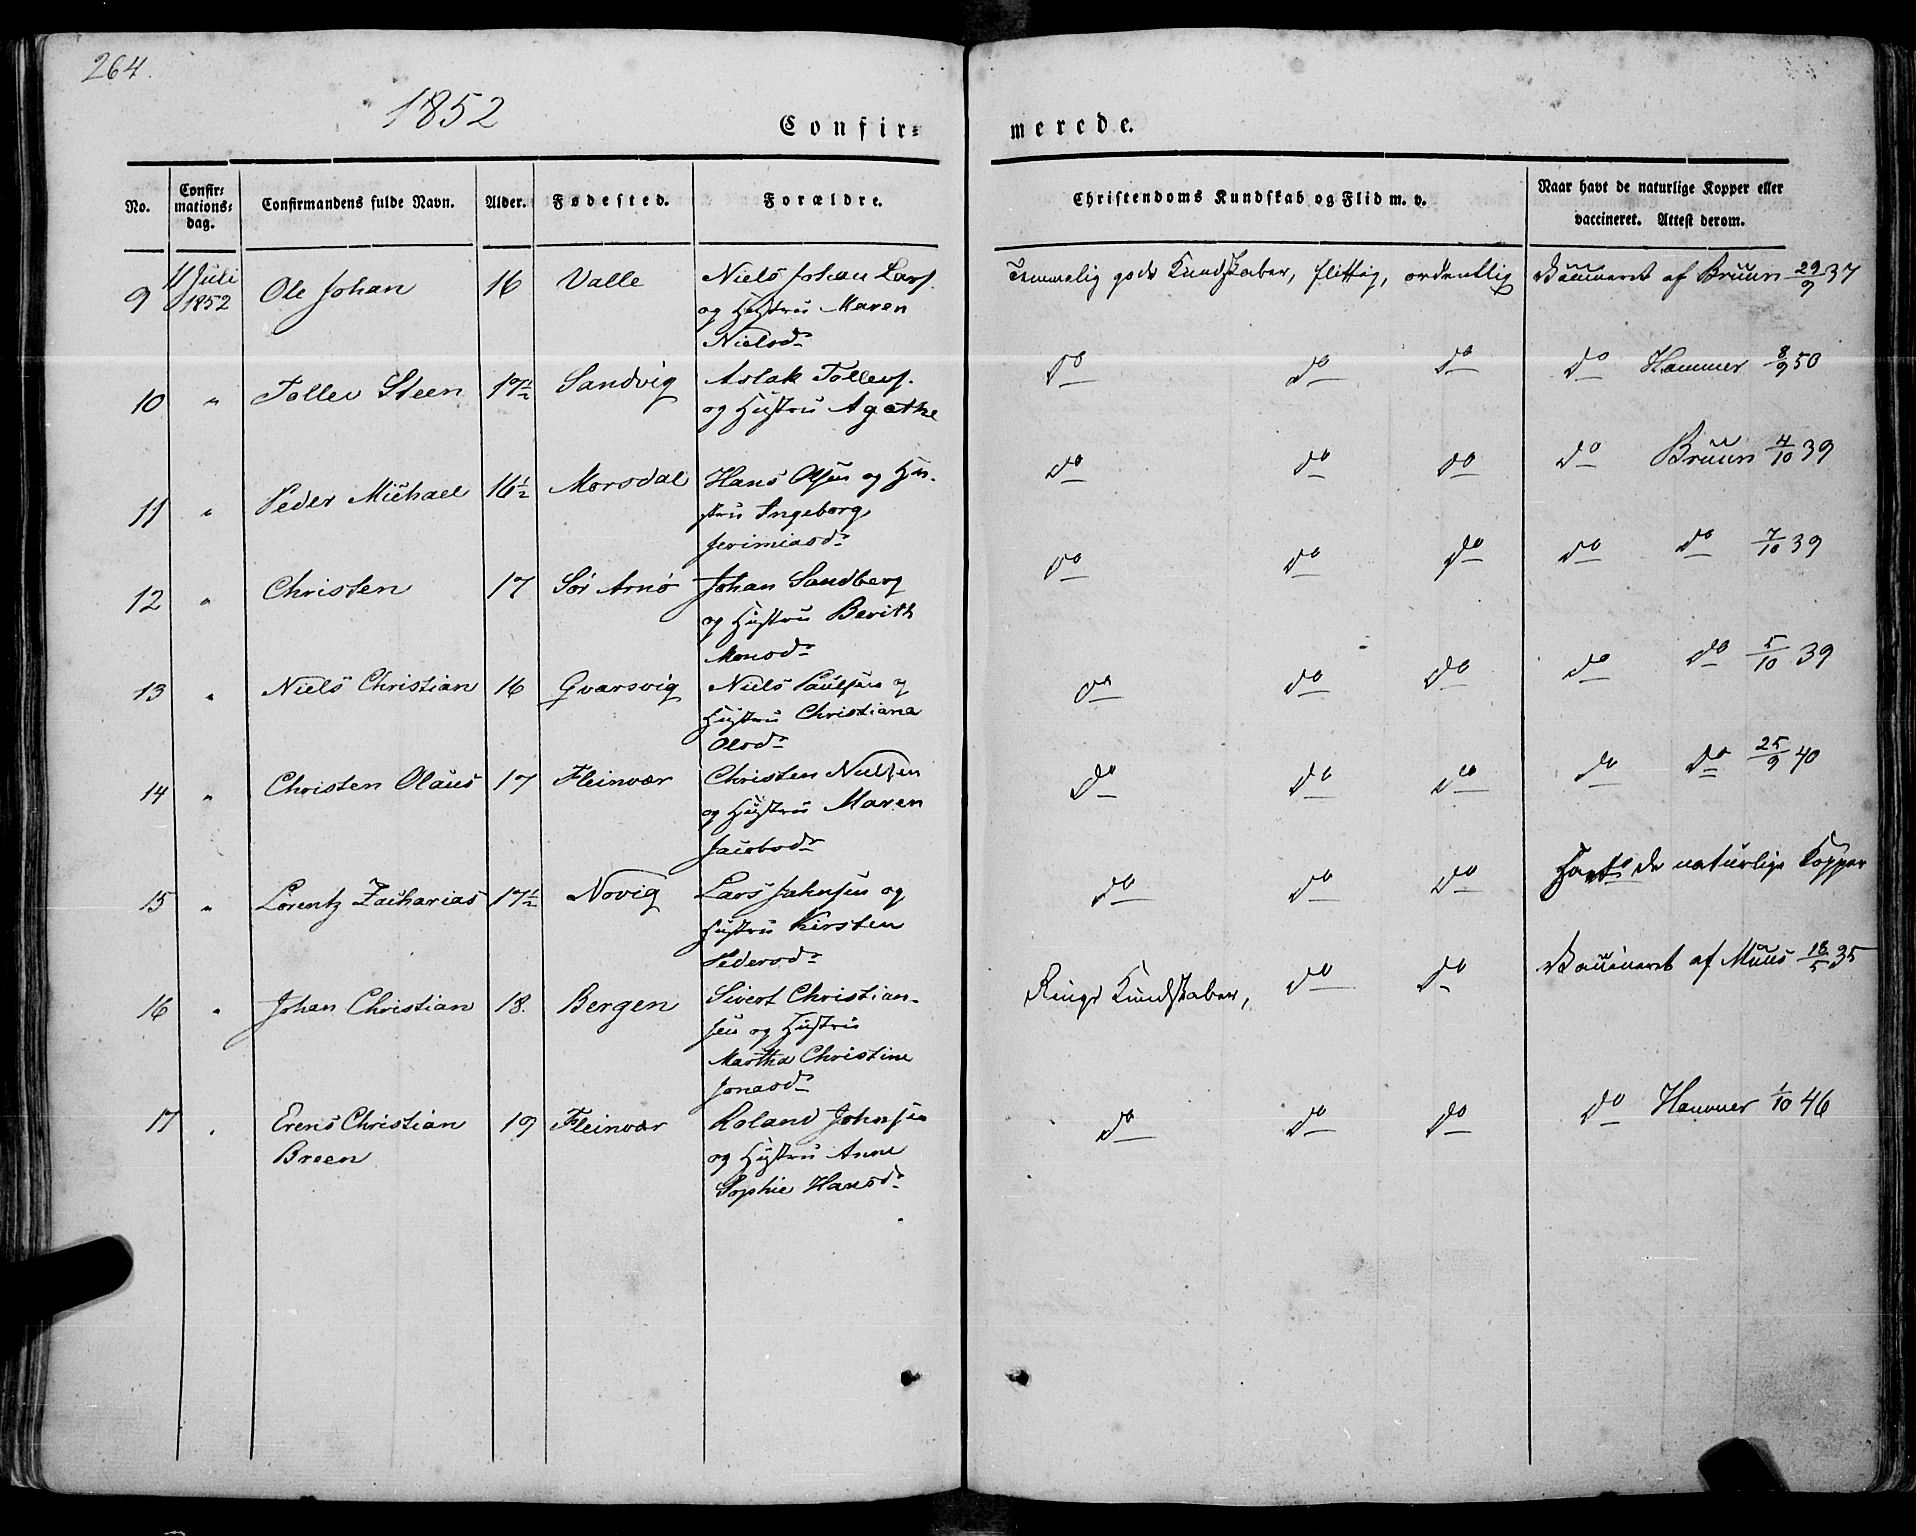 264.
1852
Confir=
merede.
No.
Confir=
mations=
dag.
Confirmandens fulde Navn.
Alder.
Fødested.
Forældre.
Christendoms Kundskab og Flid m. v.
Naar havt de naturlige Kopper eller
vaccineret. Attest derom.
9 11 Juli 1852 Ole Johan 16 Valle Niels Johan Lars. Temmelig gode Kundskaber, flittig, ordentlig Vaccineret af Bruun 29/9 37
og Hustru Maren
Nielsd.
10 " Tollev Steen 17½ Sandvig Aslak Tollevs. do do do do Hammer 8/9 50
og Hustru Agathe
11 " Peder Michael 16½ Morsdal Hans Olsen og Hu- do do do do Bruun 4/10 39
stru Ingeborg
Jerimiasd.
12 " Christen 17 Sør Arnø Johan Sandberg do do do do do 7/10 39
og Hustru Berith
Monsd.
13 " Niels Christian 16 Gvarsvig Niels Paulsen og do do do do do 5/10 39
Hustru Christiana
Olsd.
14 " Christen Olaus 17 Fleinvær Christen Nielsen do do do do do 25/9 40
og Hustru Maren
Jacobsd.
15 " Lorentz Zacharias 17½ Novig Lars Jahnsen og do do do Havt de naturlige Kopper
Hustru Kirsten
Pedersd.
16 " Johan Christian 18. Bergen Sivert Christian- Ringe Kundskaber, do do Vaccineret af Muus 18/5 35
sen og Hustru
Martha Christine
Jonasd.
17 " Erens Christian 19 Fleinvær Roland Johnsen do do do do Hammer 1/10 46
Breen og Hustru Anne
Sophie Hansd.